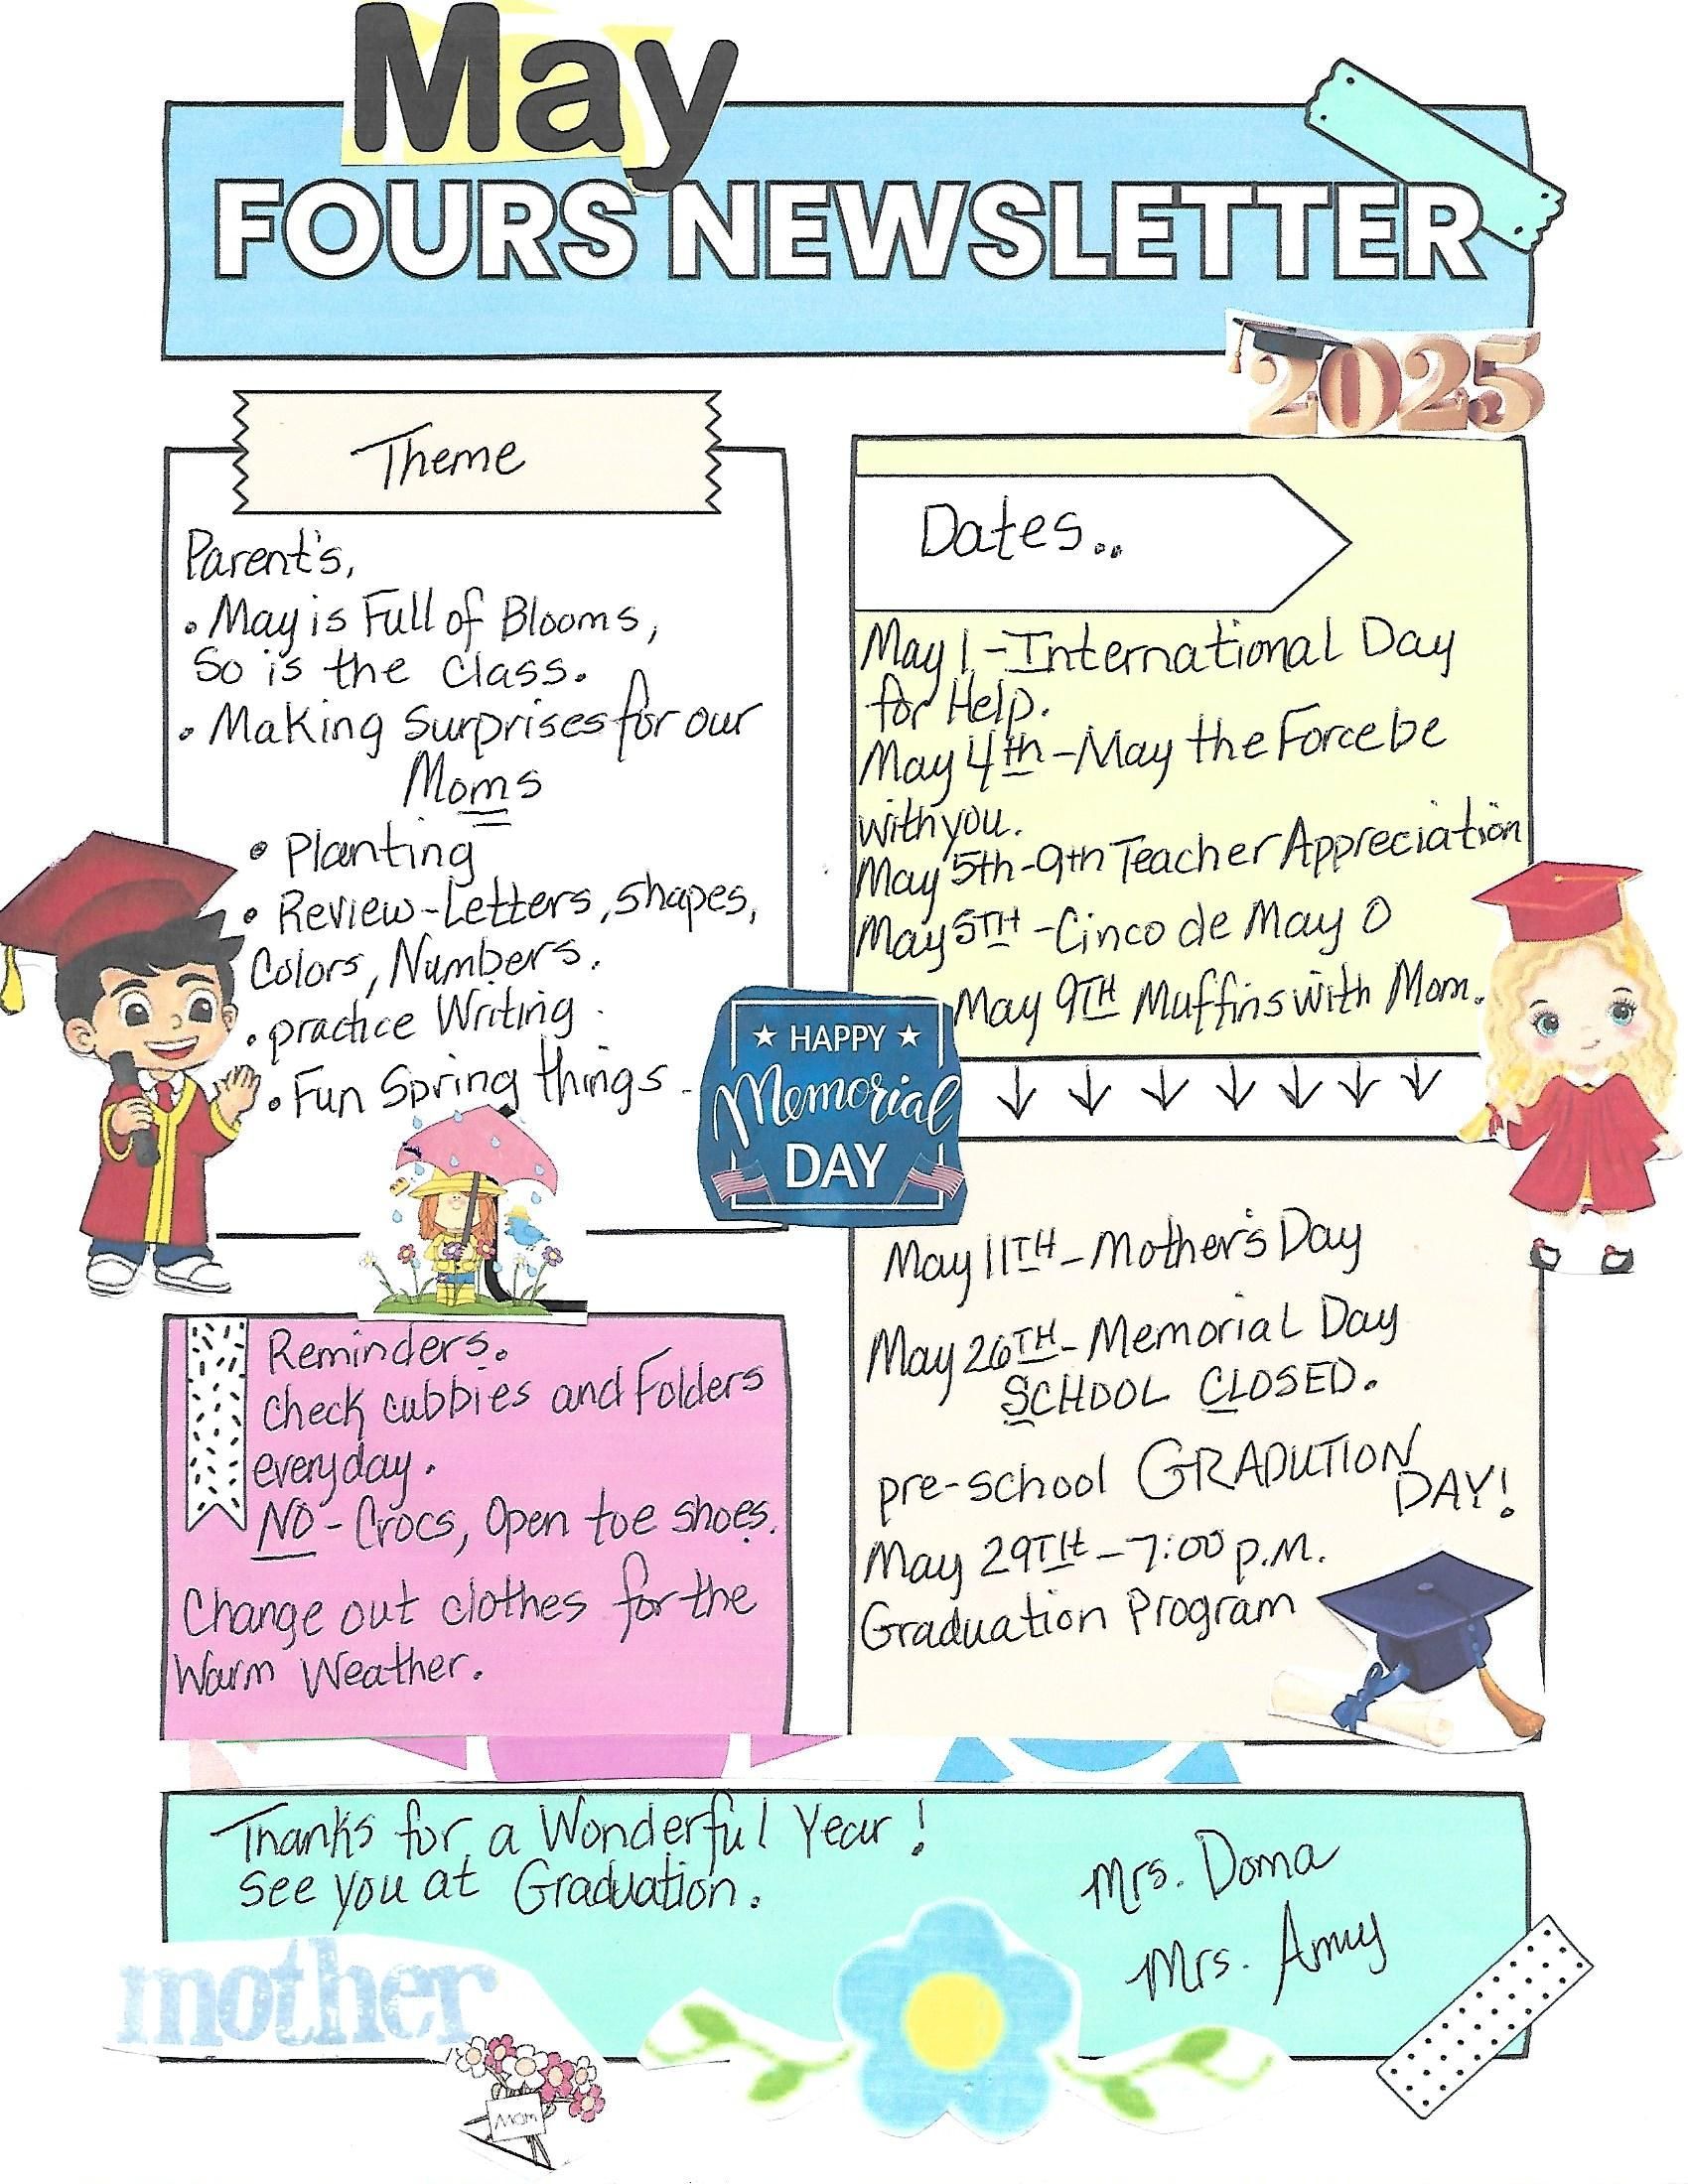 May
FOURS NEWSLETTER
2025
Theme
Parent's,
• May is Full of Blooms,
So is the class.
• Making Surprises for our
Moms
• Planting
• Review-Letters, shapes,
Colors, Numbers.
• practice Writing
• Fun Spring things
Dates..
May 1 - International Day
for Help.
May 4th - May the Force be
with you.
May 5th-9th Teacher Appreciation
May 5TH - Cinco de May O
May 9TH Muffins with Mom.
★ HAPPY ★
Memorial
DAY
May 11TH - Mother's Day
May 26TH - Memorial Day
SCHOOL CLOSED.
pre-school GRADUTION
DAY!
May 29TH - 7:00 p.M.
Graduation Program
Reminders.
check cubbies and Folders
everyday.
NO - Crocs, Open toe shoes.
Change out clothes for the
Warm Weather.
Thanks for a Wonderful Year!
see you at Graduation.
Mrs. Doma
Mrs. Amy
mother
Mom